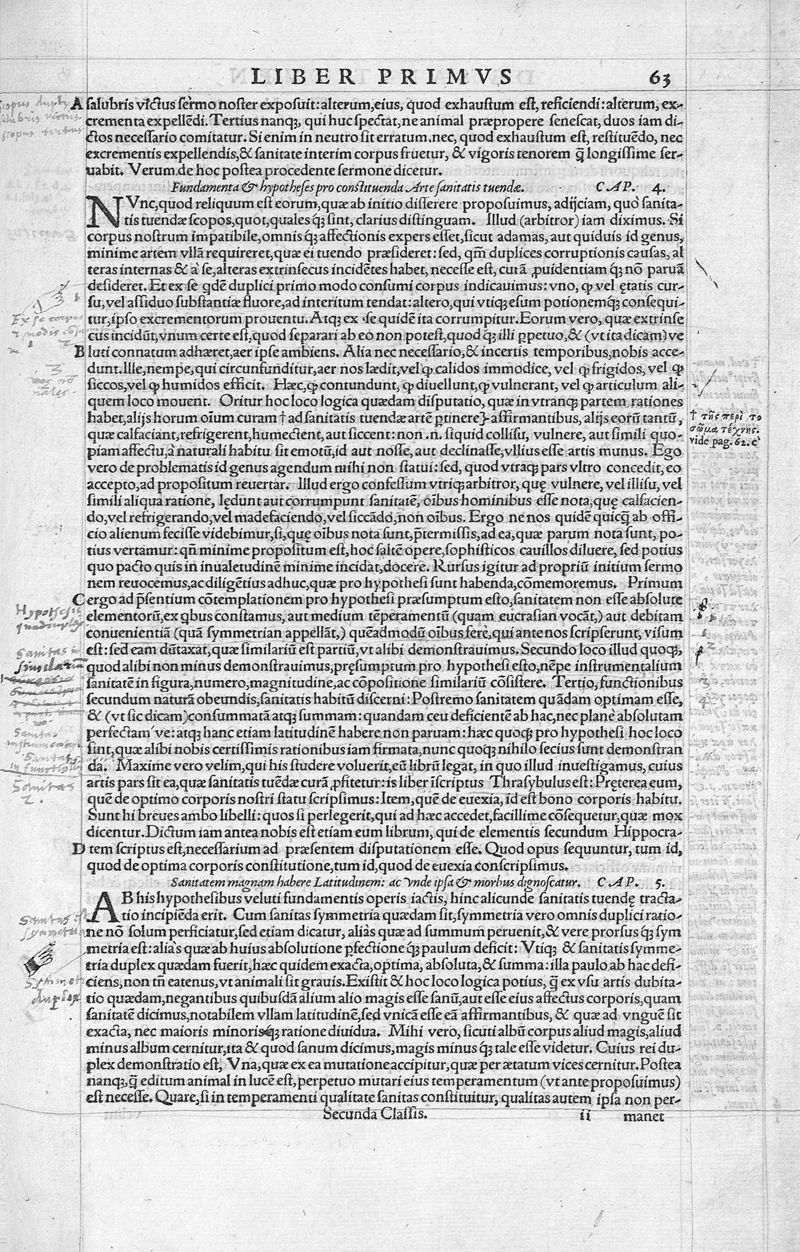 LIBER PRIMVS 63
A salubris victus sermo noster exposuit: alterum, eius, quod exhaustum est, reficiendi: alterum, ex-
crementa expellēdi. Tertius nanq;, qui huc spectat, ne animal præpropere senescat, duos iam di-
ctos necessario comitatur. Si enim in neutro sit erratum, nec, quod exhaustum est, restituēdo, nec
excrementis expellendis, & sanitate interim corpus fruetur, & vigoris tenorem q̄ longissime ser-
uabit. Verum de hoc postea procedente sermone dicetur.
Fundamenta & hypotheses pro constituenda Arte sanitatis tuendæ. CAP. 4.
NVnc, quod reliquum est eorum, quæ ab initio disserere proposuimus, adijciam, quo sanita-
tis tuendæ scopos, quot, quales q; sint, clarius distinguam. Illud (arbitror) iam diximus. Si
corpus nostrum impatibile, omnis q; affectionis expers esset, sicut adamas, aut quiduis id genus,
minime artem vllā requireret, quæ ei tuendo præsideret: sed, qm̄ duplices corruptionis causas, al
teras internas & à se, alteras extrinsecus incidētes habet, necesse est, curā, ꝓuidentiam q; nō paruā
desideret. Et ex se q̄dē duplici primo modo consumi corpus indicauimus: vno, ꝙ vel ętatis cur-
su, vel assiduo substantiæ fluore, ad interitum tendat: altero, qui vtiq; esum potionemq; consequi-
tur, ipso excrementorum prouentu. Atq; ex se quidē ita corrumpitur. Eorum vero, quæ extrinse
cus incidūt, vnum certe est, quod separari ab eo non potest, quod q; illi ꝑpetuo, & (vt ita dicam) ve
B luti connatum adhæret, aer ipse ambiens. Alia nec necessario, & incertis temporibus, nobis acce-
dunt. Ille, nempe, qui circunfunditur, aer nos lædit, vel ꝙ calidos immodice, vel ꝙ frigidos, vel ꝙ
siccos, vel ꝙ humidos efficit. Hæc, ꝙ contundunt, ꝙ diuellunt, ꝙ vulnerant, vel ꝙ articulum ali-
quem loco mouent. Oritur hoc loco logica quædam disputatio, quæ in vtranq; partem rationes
habet, alijs horum oīum curam † ad sanitatis tuendæ artē ꝑtinere} affirmantibus, alijs eorū tantū,
quæ calfaciant, refrigerent, humectent, aut siccent: non .n. siquid collisu, vulnere, aut simili quo-
piam affectu, à naturali habitu sit emotū, id aut nosse, aut declinasse, vllius esse artis munus. Ego
vero de problematis id genus agendum mihi non statui: sed, quod vtraq; pars vltro concedit, eo
accepto, ad propositum reuertar. Illud ergo confessum vtriq; arbitror, quę vulnere, vel illisu, vel
simili aliqua ratione, lędunt aut corrumpunt sanitatē, oībus hominibus esse nota, quę calfacien-
do, vel refrigerando, vel madefaciendo, vel siccādo, non oībus. Ergo ne nos quidē quicq̄ ab offi-
cio alienum fecisse videbimur, si, quę oībus nota sunt, p̄termissis, ad ea, quæ parum nota sunt, po-
tius vertamur: qn̄ minime propositum est, hoc saltē opere, sophisticos cauillos diluere, sed potius
quo pacto quis in inualetudinē minime incidat, docere. Rursus igitur ad propriū initium sermo
nem reuocemus, ac diligētius adhuc, quæ pro hypothesi sunt habenda, cōmemoremus. Primum
C ergo ad p̄sentium cōtemplationem pro hypothesi præsumptum esto, sanitatem non esse absolute
elementorū, ex qbus constamus, aut medium tēperamentū (quam eucrasian vocāt,) aut debitam
conuenientiā (quā symmetrian appellāt,) quēadmodū oībus ferè, qui ante nos scripserunt, visum
est: sed eam dūtaxat, quæ similariū est partiū, vt alibi demonstrauimus. Secundo loco illud quoq;,
quod alibi non minus demonstrauimus, pręsumptum pro hypothesi esto, nēpe instrumentalium
sanitatē in figura, numero, magnitudine, ac cōpositione similariū cōsistere. Tertio, functionibus
secundum naturā obeundis, sanitatis habitū discerni: Postremo sanitatem quādam optimam esse,
& (vt sic dicam) consummatā atq; summam: quandam ceu deficientē ab hac, nec plane absolutam
perfectam ve: atq; hanc etiam latitudinē habere non paruam: hæc quoq; pro hypothesi hoc loco
sint, quæ alibi nobis certissimis rationibus iam firmata, nunc quoq; nihilo secius sunt demonstran
da. Maxime vero velim, qui his studere voluerit, eū librū legat, in quo illud inuestigamus, cuius
artis pars sit ea, quæ sanitatis tuēdæ curā ꝓfitetur: is liber īscriptus Thrasybulus est: Pręterea eum,
quē de optimo corporis nostri statu scripsimus: Item, quē de euexia, id est bono corporis habitu.
Sunt hi breues ambo libelli: quos si perlegerit, qui ad hæc accedet, facillime cōsequetur, quæ mox
dicentur. Dictum iam antea nobis est etiam eum librum, qui de elementis secundum Hippocra-
D tem scriptus est, necessarium ad præsentem disputationem esse. Quod opus sequuntur, tum id,
quod de optima corporis constitutione, tum id, quod de euexia conscripsimus.
Sanitatem magnam habere Latitudinem: ac Vnde ipsa & morbus dignoscatur. CAP. 5.
AB his hypothesibus veluti fundamentis operis iactis, hinc alicunde sanitatis tuendę tracta-
tio incipiēda erit. Cum sanitas symmetria quædam sit, symmetria vero omnis duplici ratio-
ne nō solum perficiatur, sed etiam dicatur, aliàs quæ ad summum peruenit, & vere prorsus q; sym
metria est: aliàs quæ ab huius absolutione ꝑfectione q; paulum deficit: Vtiq; & sanitatis symme-
tria duplex quædam fuerit, hæc quidem exacta, optima, absoluta, & summa: illa paulo ab hac defi-
ciens, non tm̄ eatenus, vt animali sit grauis. Existit & hoc loco logica potius, q̄ ex vsu artis dubita-
tio quædam, negantibus quibusdā alium alio magis esse sanū, aut esse eius affectus corporis, quam
sanitatē dicimus, notabilem vllam latitudinē, sed vnicā esse eā affirmantibus, & quæ ad vnguē sit
exacta, nec maioris minoris q; ratione diuidua. Mihi vero, sicuti albū corpus aliud magis, aliud
minus album cernitur, ita & quod sanum dicimus, magis minus q; tale esse videtur. Cuius rei du-
plex demonstratio est, Vna, quæ ex ea mutatione accipitur, quæ per ætatum vices cernitur. Postea
nanq;, q̄ editum animal in lucē est, perpetuo mutari eius temperamentum (vt ante proposuimus)
est necesse. Quare, si in temperamenti qualitate sanitas constituitur, qualitas autem ipsa non per-
Secunda Classis. ii manet
† τῆς περὶ το
σῶμα τέχνης.
vide pag. 62. c